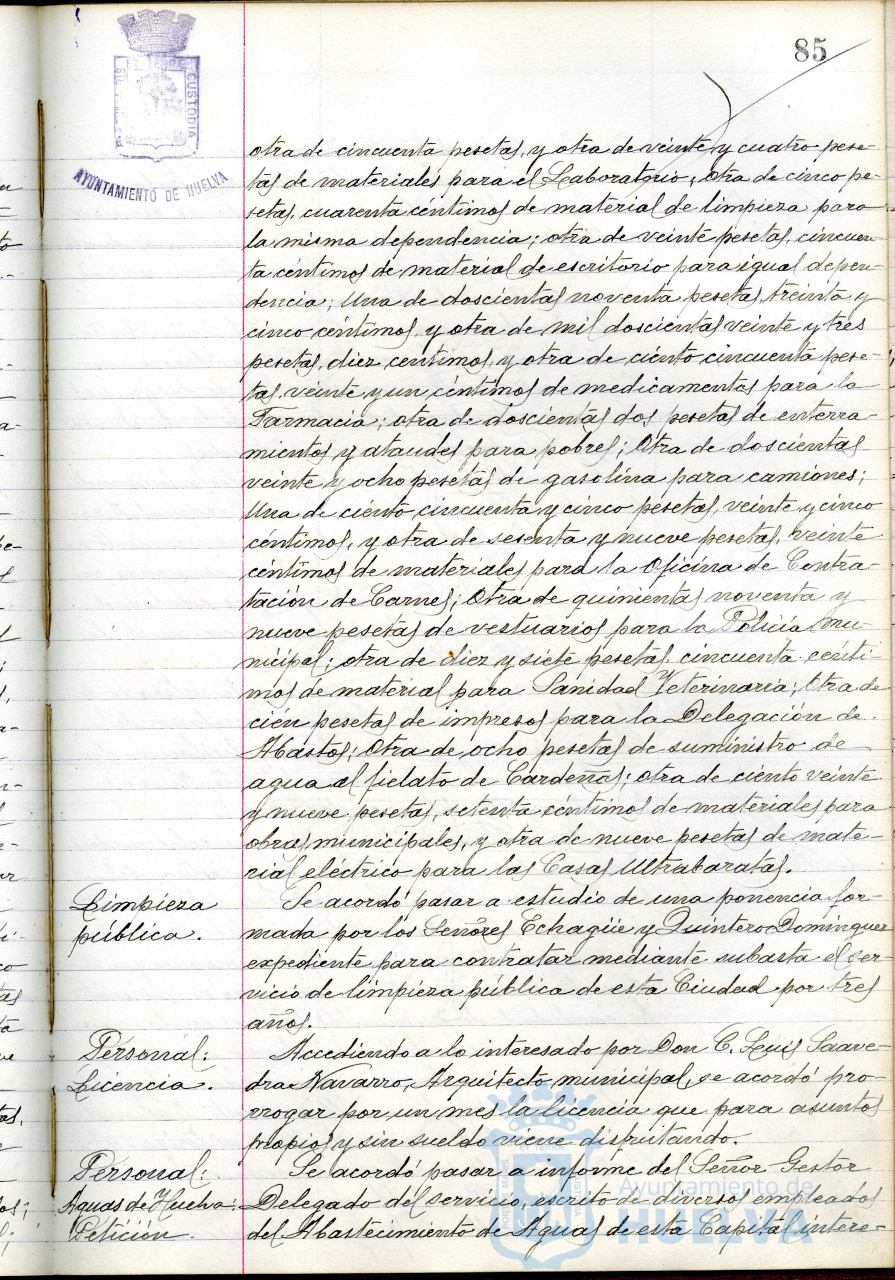 85
EL TERRE
CUSTODIA
AYUNTAMIENTO DE HUELVA
otra de cincuenta pesetas, y otra de veinte y cuatro pese-
tas de materiales para el Laboratorio; otra de cinco pe-
setas, cuarenta céntimos de material de limpieza para
la misma dependencia; otra de veinte pesetas, cincuen-
ta céntimos de material de escritorio para igual depen-
dencia; Una de doscientas noventa pesetas, treinta y
cinco céntimos, y otra de mil doscientas veinte y tres
pesetas, diez centimos, y otra de ciento cincuenta pese-
tas, veinte y un céntimos de medicamentos para la
Farmacia; otra de doscientas dos pesetas de enterra-
mientos y ataudes para pobres; Otra de doscientas
veinte y ocho pesetas de gasolina para camiones;
Una de ciento cincuenta y cinco pesetas, veinte y cinco
céntimos, y otra de sesenta y nueve pesetas, veinte
céntimos de materiales para la Oficina de Contra-
tación de Carnes; Otra de quinientas noventa y
nueve pesetas de vestuarios para la Policía mu-
nicipal; otra de diez y siete pesetas, cincuenta cénti-
mos de material para Sanidad Veterinaria; Otra de
cien pesetas de impresos para la Delegación de
Abastos; Otra de ocho pesetas de suministro de
agua al fielato de Cardeñas; otra de ciento veinte
y nueve pesetas, setenta céntimos de materiales para
obras municipales, y otra de nueve pesetas de mate-
rial eléctrico para las Casas Ultrabaratas.
Limpieza
pública.
Se acordó pasar a estudio de una ponencia for-
mada por los Señores Echagüe y Quintero Domínguez
expediente para contratar mediante subasta el ser-
vicio de limpieza pública de esta Ciudad por tres
años.
Personal:
Licencia.
Accediendo a lo interesado por Don C. Luis Saave-
dra Navarro, Arquitecto municipal, se acordó pro-
rrogar por un mes la licencia que para asuntos
propios y sin sueldo viene disfrutando.
Personal:
Aguas de Huelva:
Petición.
Se acordó pasar a informe del Señor Gestor
Delegado del servicio, escrito de diversos empleados
del Abastecimiento de Aguas de esta Capital intere-
Ayuntamiento de
HUELVA